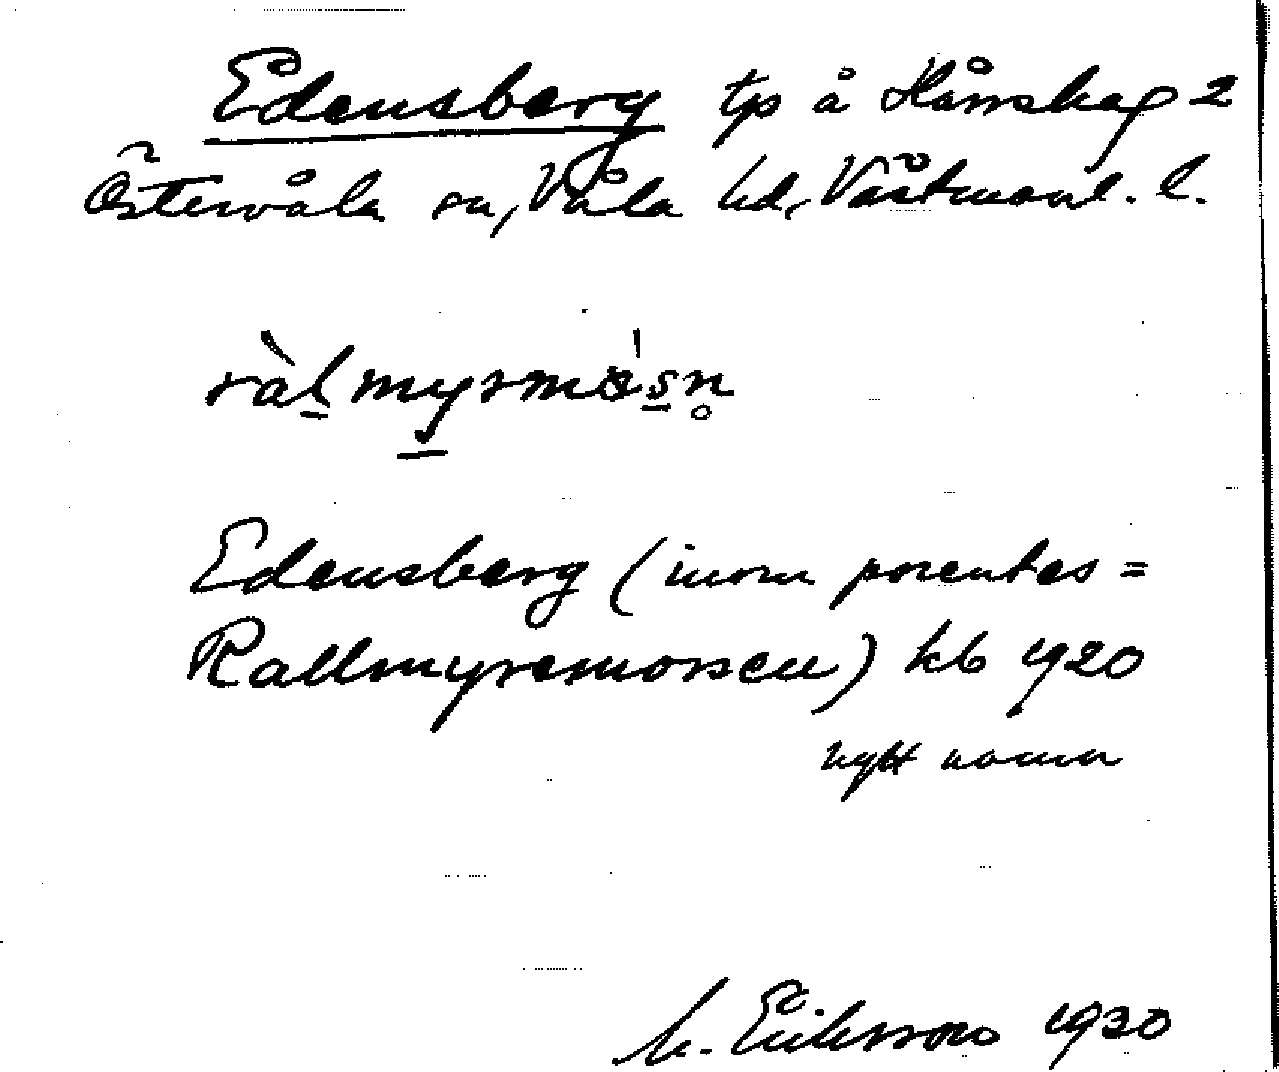 Edensberg tp å Hårrskog 2
Östervåla sn, Våla hd, Västmanl. l.
ràl myrmósn
Edensberg (inom parentes =
Rallmyremossen) kb 1920
nytt namn
M. Eriksson 1930